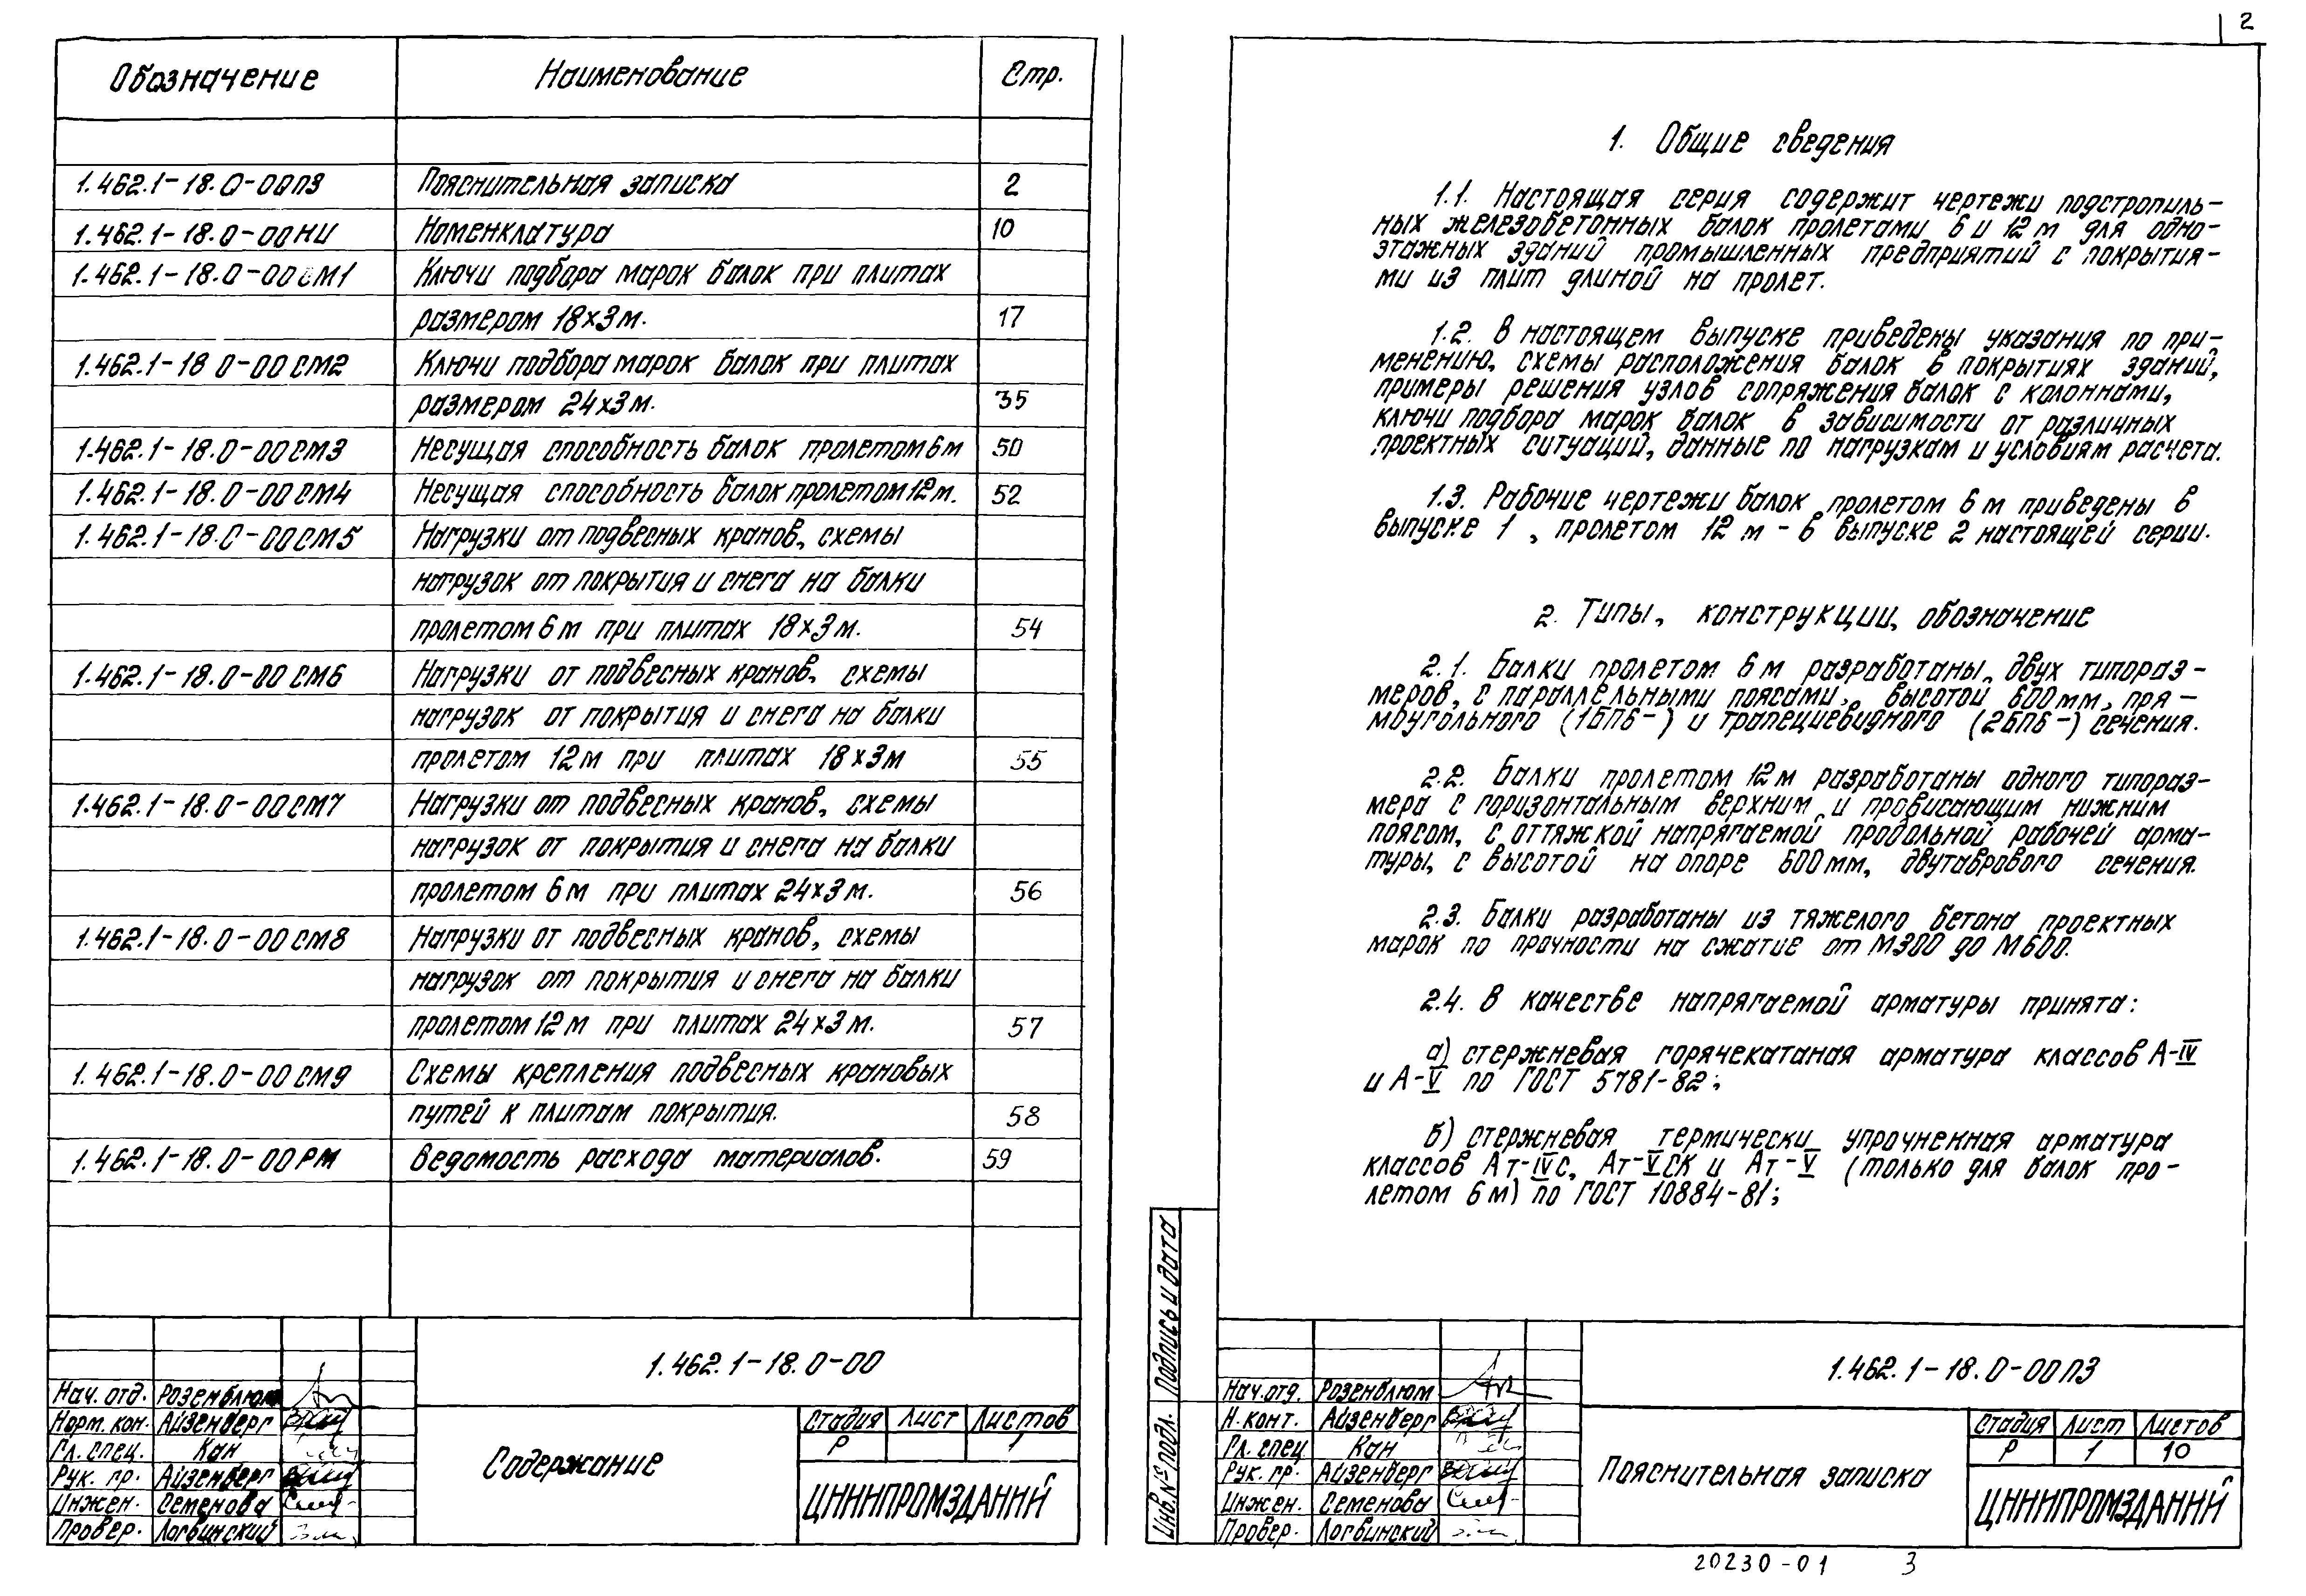 Обозначение Наименование Стр.
1.462.1-18.0-00ПЗ Пояснительная записка 2
1.462.1-18.0-00НИ Номенклатура 10
1.462.1-18.0-00СМ1 Ключи подбора марок балок при плитах
размером 18х3м. 17
1.462.1-18 0-00СМ2 Ключи подбора марок балок при плитах
размером 24х3м. 35
1.462.1-18.0-00СМ3 Несущая способность балок пролетом 6м 50
1.462.1-18.0-00СМ4 Несущая способность балок пролетом 12м. 52
1.462.1-18.0-00СМ5 Нагрузки от подвесных кранов, схемы
нагрузок от покрытия и снега на балки
пролетом 6м при плитах 18х3м. 54
1.462.1-18.0-00СМ6 Нагрузки от подвесных кранов, схемы
нагрузок от покрытия и снега на балки
пролетом 12м при плитах 18х3м 55
1.462.1-18.0-00СМ7 Нагрузки от подвесных кранов, схемы
нагрузок от покрытия и снега на балки
пролетом 6м при плитах 24х3м. 56
1.462.1-18.0-00СМ8 Нагрузки от подвесных кранов, схемы
нагрузок от покрытия и снега на балки
пролетом 12м при плитах 24х3м. 57
1.462.1-18.0-00СМ9 Схемы крепления подвесных крановых
путей к плитам покрытия. 58
1.462.1-18.0-00РМ Ведомость расхода материалов. 59
1.462.1-18.0-00
Нач. отд. Розенблюм
Норм. кон. Айзенберг
Гл. спец. Кан
Рук. гр. Айзенберг
Инжен. Семенова
Провер. Логвинский
Содержание
Стадия Лист Листов
Р 1
ЦНИИПРОМЗДАНИЙ
2
1. Общие сведения
1.1. Настоящая серия содержит чертежи подстропиль-
ных железобетонных балок пролетами 6 и 12м для одно-
этажных зданий промышленных предприятий с покрытия-
ми из плит длиной на пролет.
1.2. В настоящем выпуске приведены указания по при-
менению, схемы расположения балок в покрытиях зданий,
примеры решения узлов сопряжения балок с колоннами,
ключи подбора марок балок в зависимости от различных
проектных ситуаций, данные по нагрузкам и условиям расчета.
1.3. Рабочие чертежи балок пролетом 6м приведены в
выпуске 1, пролетом 12м - в выпуске 2 настоящей серии.
2. Типы, конструкции, обозначение
2.1. Балки пролетом 6м разработаны двух типораз-
меров, с параллельными поясами, высотой 600мм, пря-
моугольного (1БП6-) и трапециевидного (2БП6-) сечения.
2.2. Балки пролетом 12м разработаны одного типораз-
мера с горизонтальным верхним и провисающим нижним
поясом, с оттяжкой напрягаемой продольной рабочей арма-
туры, с высотой на опоре 600мм, двутаврового сечения.
2.3. Балки разработаны из тяжелого бетона проектных
марок по прочности на сжатие от М300 до М600.
2.4. В качестве напрягаемой арматуры принята:
а) стержневая горячекатаная арматура классов А-IV
и А-V по ГОСТ 5781-82;
б) стержневая термически упрочненная арматура
классов Ат-IVС, Ат-VСК и Ат-V (только для балок про-
летом 6м) по ГОСТ 10884-81;
Подпись и дата
Инв. № подл.
1.462.1-18.0-00ПЗ
Нач. отд. Розенблюм
Н. конт. Айзенберг
Гл. спец Кан
Рук. гр. Айзенберг
Инжен. Семенова
Провер. Логвинский
Пояснительная записка
Стадия Лист Листов
Р 1 10
ЦНИИПРОМЗДАНИЙ
20230-01 3